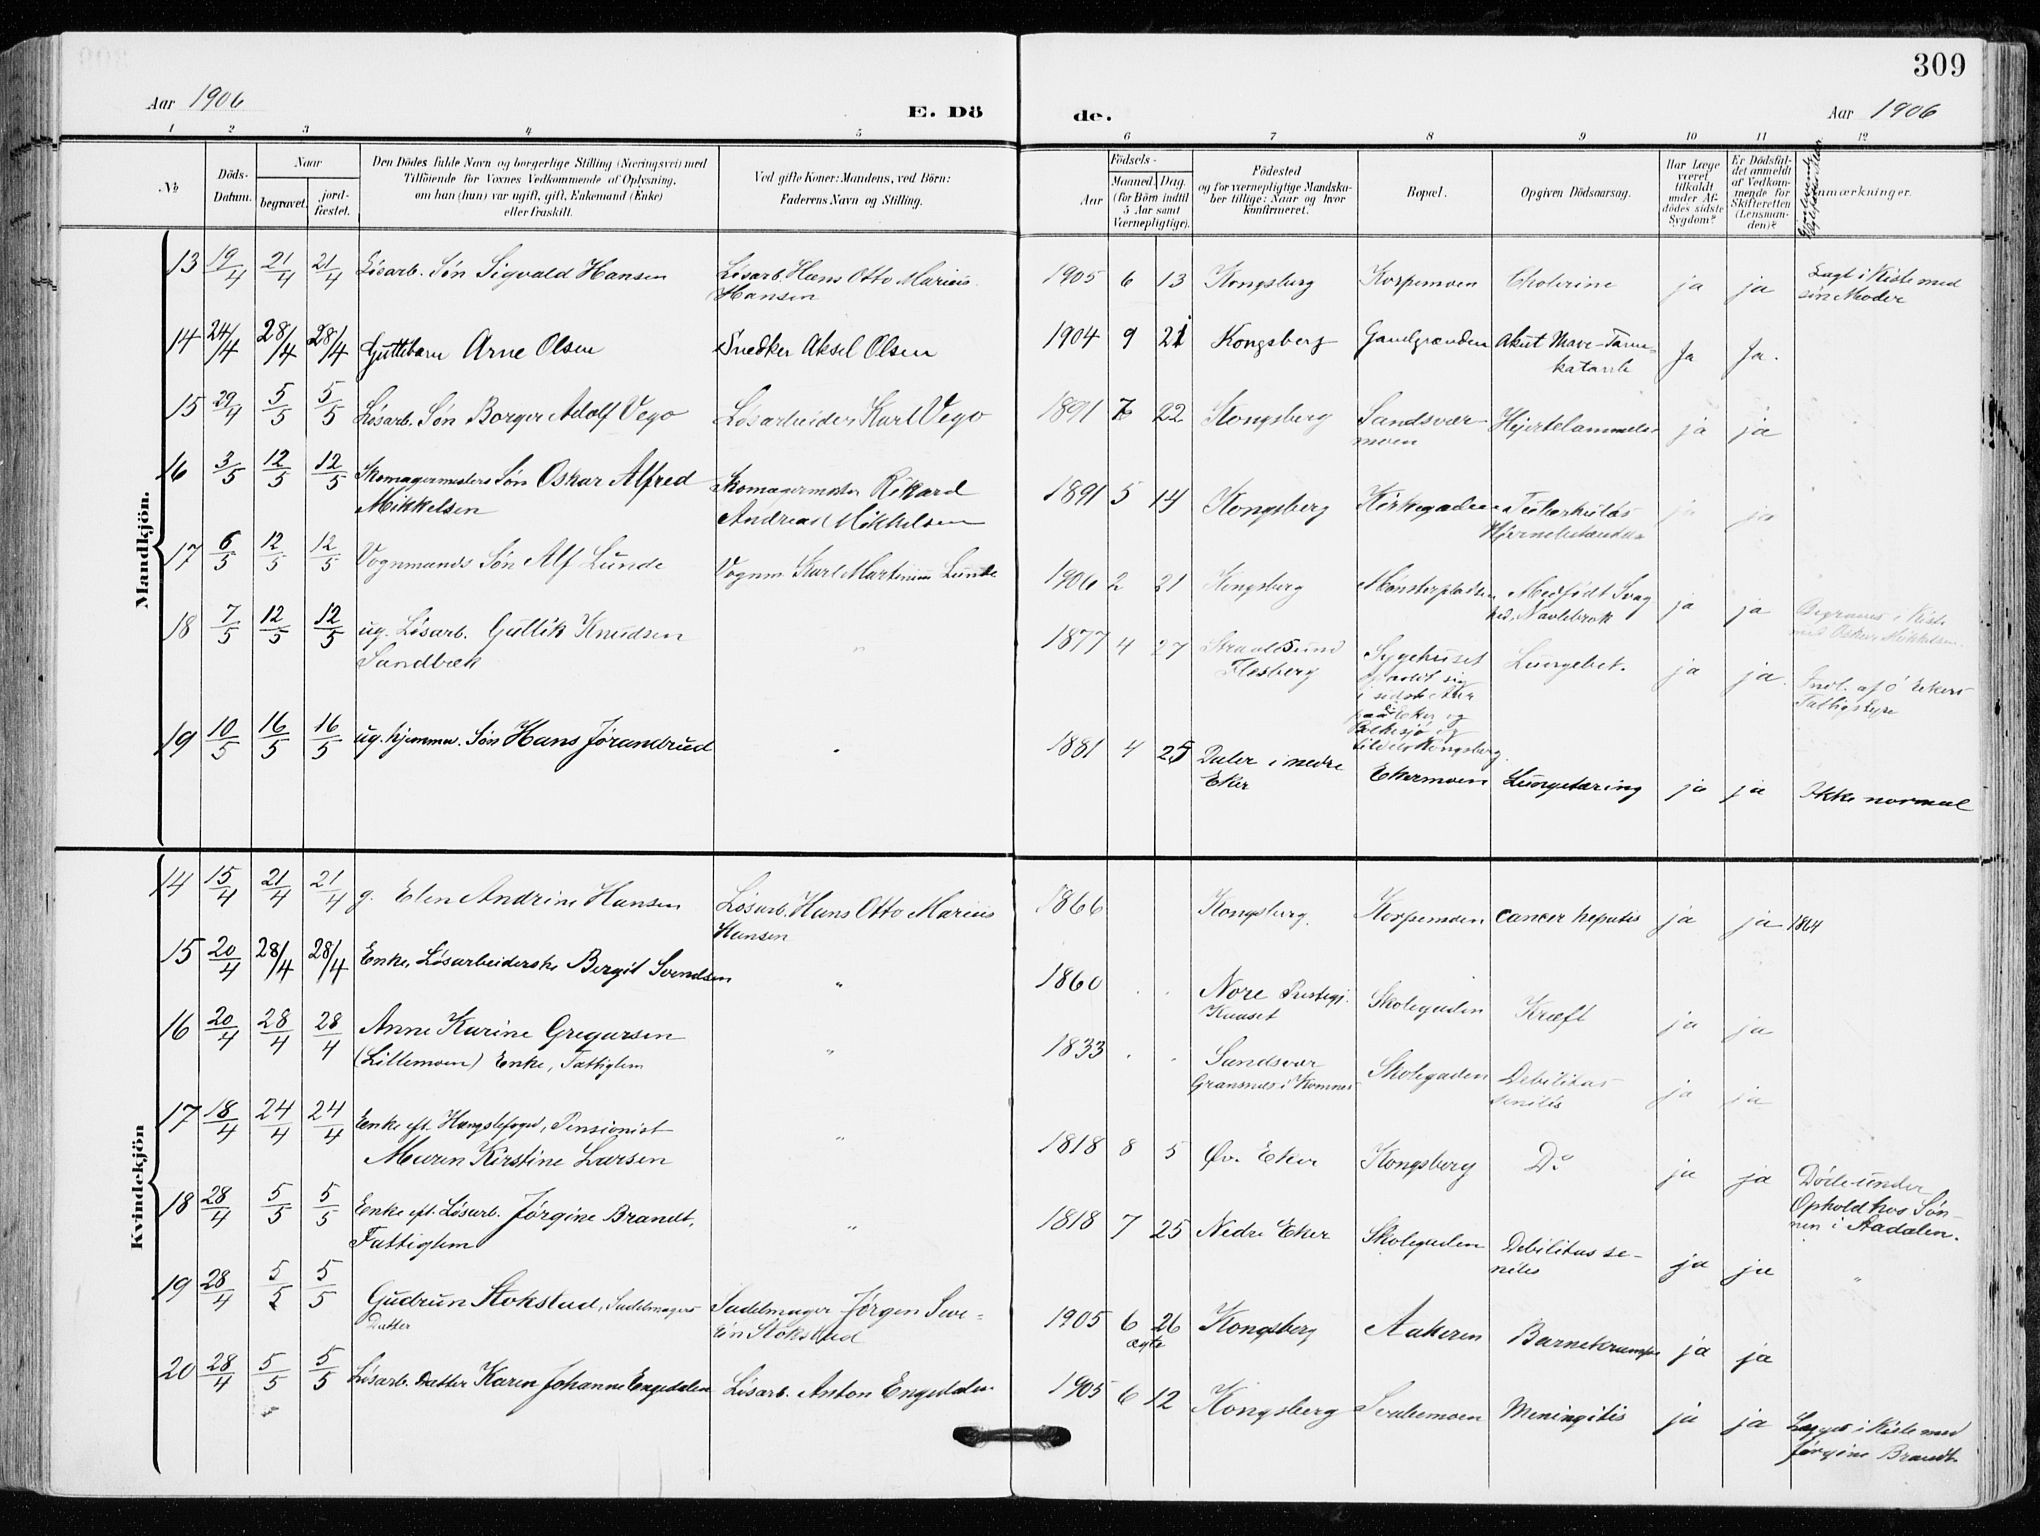 309
Aar 1906
E. Dö
de.
Aar 1906
1 2 3 4 5 6 7 8 9 10 11 12
№
Döds-Datum.
Naar
begravet.
jord-fæstet.
Den Dödes fulde Navn og borgerlige Stilling (Næringsvei) med
Tilföiende for Voxnes Vedkommende af Oplysning,
om han (hun) var ugift, gift, Enkemand (Enke)
eller fraskilt.
Ved gifte Koner: Mandens, ved Börn:
Faderens Navn og Stilling.
Födsels-
Aar
Maaned. Dag.
(for Börn indtil
5 Aar samt
Værnepligtige).
Födested
og for værnepligtige Mandska-
ber tillige: Naar og hvor
konfirmeret.
Bopæl.
Opgiven Dödsaarsag.
Har Læge
været
tilkaldt
under Af-
dödes sidste
Sygdom?
Er Dödsfal-
det anmeldt
af Vedkom-
mende for
Skifteretten
(Lensman-
den)?
Anmærkninger.
Mandkjön.
13 19/4 21/4 21/4 Løsarb. Søn Sigvald Hansen Løsarb. Hans Otto Marius 1905 6 13 Kongsberg Korpemoen Cholerine ja ja Lagt i Kiste med
Hansen sin Moder
14 24/4 28/4 28/4 Guttebarn Arne Olsen Snedker Aksel Olsen 1904 9 21 Kongsberg Gamlgrænden Akut Mave-Tarm-
katarrh Ja Ja.
15 29/4 5/5 5/5 Løsarb. Søn Borger Adolf Vego Løsarbeider Karl Vego 1891 7 22 Kongsberg Sandsvær-
moen Hjertelammelse ja ja
16 3/5 12/5 12/5 Skomagermesters Søn Oskar Alfred Skomagermester Rikard 1891 5 14 Kongsberg Kirkegaden Tuberkuløs
Mikkelsen Andreas Mikkelsen Hjernebetændelse ja ja
17 6/5 12/5 12/5 Vognmands Søn Alf Lunde Vognm. Karl Martinius Lunde 1906 2 21 Kongsberg Mønsterpladsen Medfødt Svag
hed, Navlebrok ja ja Begraves i Kiste
med Oskar Mikkelsen.
18 7/5 12/5 12/5 ug. Løsarb. Gullik Knudsen " 1877 4 27 Straalsund Sygehuset Lungebet. ja ja.
Sandbæk Flesberg
opholdt sig
i sidste Aar
paa Eker og
Bolkesjø og
tildels Kongsberg
Indl. af Ø Ekers
Fattigstyre
19 10/5 16/5 16/5 ug. hjemmev. Søn Hans Jørandrud " 1881 4 25 Daler i nedre
Eker Ekermoen Lungetæring ja ja Ikke normal
Kvindekjön
14 15/4 21/4 21/4 g. Elen Andrine Hansen Løsarb. Hans Otto Marius 1866 Kongsberg. Korpemoen cancer hepatis ja ja 1864
Hansen
15 20/4 28/4 28/4 Enke, Løsarbeiderske Bergit Svendsen " 1860 . . Nore Prestegj. Skolegaden Kræft ja ja
16 20/4 28/4 28/4 Anne Karine Gregarsen " 1833 . . Sandsvær Skolegaden Debilitas ja ja
(Lillemoen) Enke, Fattiglem senilis
17 18/4 24/4 24/4 Enke eft. Hængslefoged, Pensionist " 1818 8 5 Øv. Eker Kongsberg Do ja ja Døde under
Maren Kirstine Larsen Ophold hos Søn-
nen i Aadalen.
18 28/4 5/5 5/5 Enke eft. Løsarb. Jørgine Brandt, " 1818 7 25 Nedre Eker Skolegaden Debilitas se-
Fattiglem nilis ja ja "
19 28/4 5/5 5/5 Gudrun Stokstad, Sadelmagers Sadelmager Jørgen Sve- 1905 6 26 Kongsberg Aakeren Barnekrampe ja ja
Datter in Stokstad ægte
20 28/4 5/5 5/5 Løsarb. Datter Karen Johanne Engedalen Løsarb. Anton Engedalen 1905 6 12 Kongsberg Meningitis ja ja Lagt i Kiste med
Jørgine Brandt